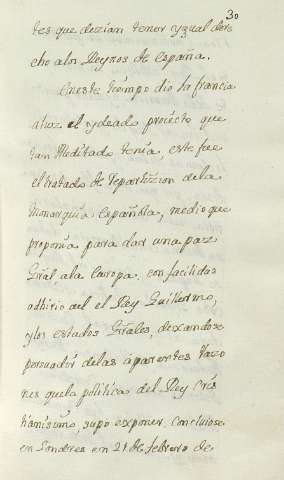 30
tes que dezian tener yqual dere
cho a los Reynos de España.
En este tiempo dio la francia
a luz el ydeado proiecto que
tan Meditado tenia, este fue
el tratado de repartizion de la
Monarquia Española, medio que
proponia para dar una paz
Gral, a la Europa. con facilidad
adhirio a el el Rey Guillermo,
y los estados Grales, dexandose
persuadir de las aparentes razo
nes que la politica del Rey Cris
tianisimo, supo exponer. concluiose
en Londres en 21 de febrero de